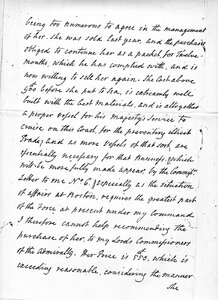 being too numerous to agree in the management
of her. She was sold last year, and the purchaser
obliged to continue her as a packet for Twelve
months, which he has complied with, and is
now willing to sell her again. She Cost above
before she put to Sea, is extremely well
built with the best materials, and is altogether
a proper Vessel for his Majesty's Service to
Cruise on this Coast, for the preventing illicit
Trade; and as more Vessels of that sort, are
essentially necessary for that Business, (which
will be more fully made appear by the
Letter to me No. 6.) especially as the situation
of affairs at Boston, requires the greatest part
of the Force at present under my Command
I therefore cannot help recommending the
purchase of her, to my Lords Commissioners
of the Admiralty. Her Price is which is
exceeding reasonable, considering the manner
She